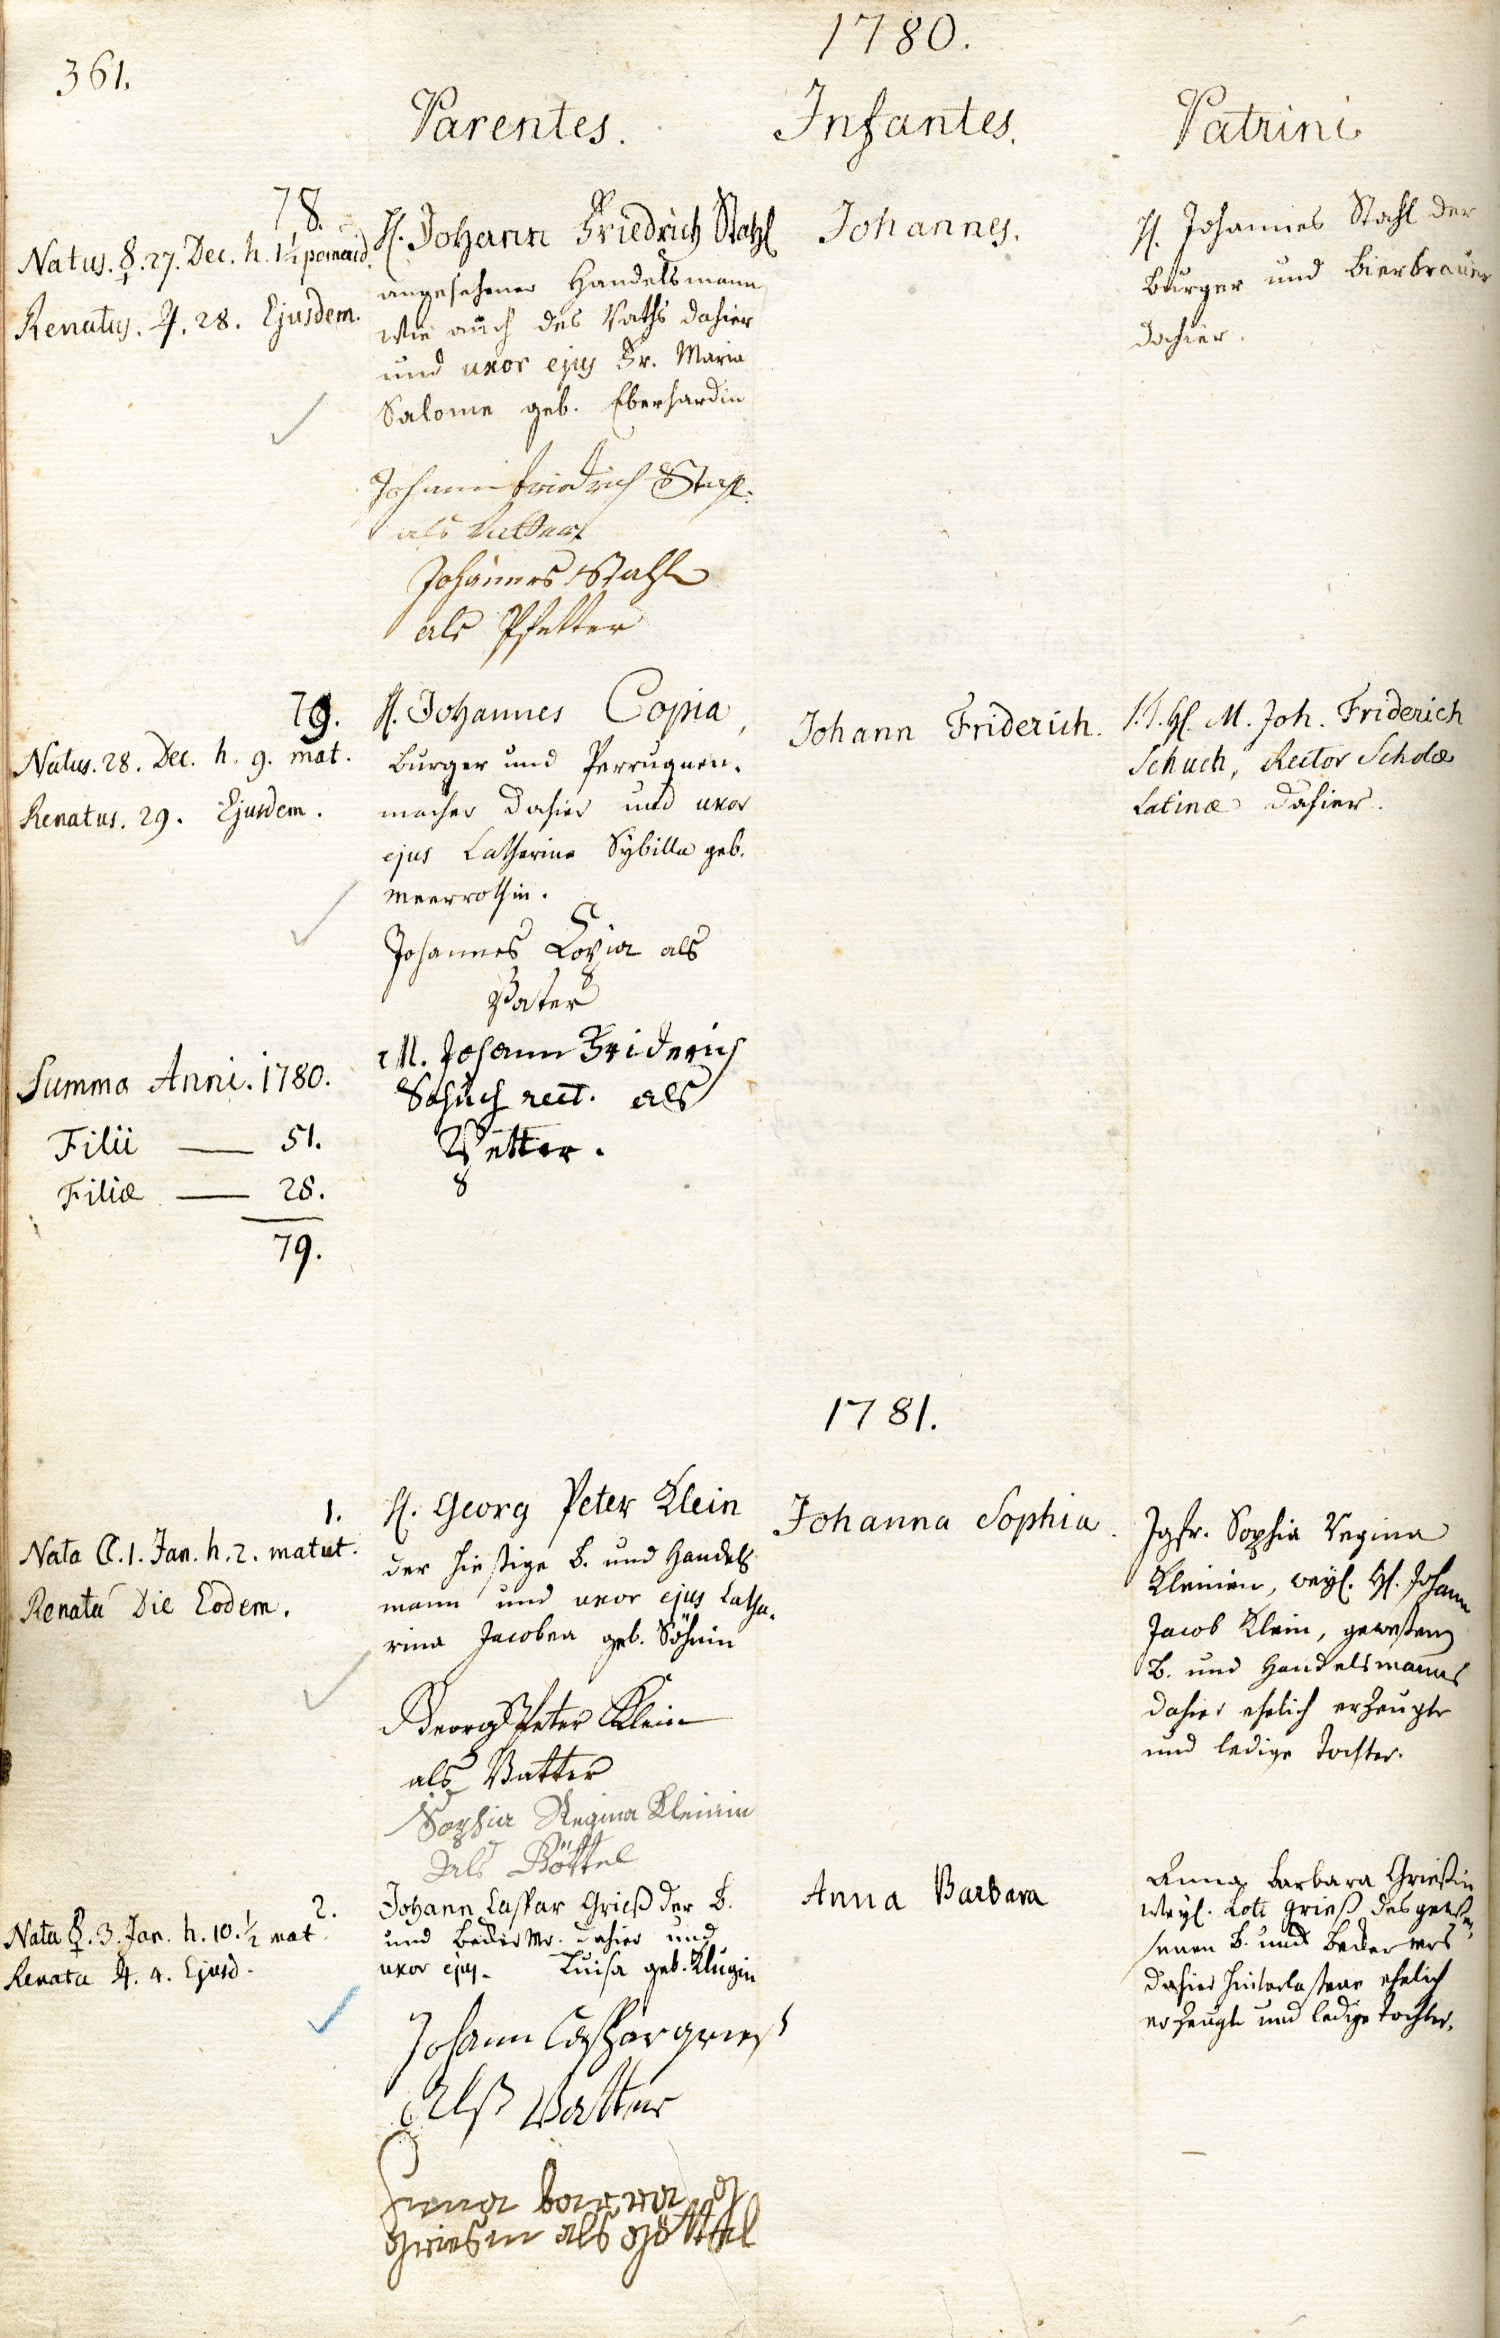 361.
1780.
Parentes.
Infantes.
Patrini
78.
Natus. ☿. 27. Dec. h. 1½ pomerid.
Renatus. ♃. 28. Ejusdem.
H. Johann Friedrich Stahl
angesehener Handelsmann
wie auch des Raths dahier
und uxor ejus Fr. Maria
Salome geb. Eberhardin
Johann Friedrich Stahl
als Vatter
Johannes Stahl
als Pfetter
Johannes.
H. Johannes Stahl der
Burger und Bierbrauer
dahier.
79.
Natus. 28. Dec. h. 9. mat.
Renatus. 29. Ejusdem.
H. Johannes Copia,
Burger und Perruquen-
macher dahier und uxor
ejus Catharina Sybilla geb.
Meerrothin.
Johannes Copia als
Vater
M. Johann Friderich
Schuch rect. als
Petter.
Johann Friderich.
H. M. Joh. Friderich
Schuch, Rector Scholæ
Latinæ dahier.
Summa Anni. 1780.
Filii — 51.
Filiæ — 28.
79.
1781.
1.
Nata ☾. 1. Jan. h. 2. matut.
Renata Die Eodem.
H. Georg Peter Klein
der hiesige B. und Handels
mann und uxor ejus Catha-
rina Jacobea geb. Söhnin
Georg Peter Klein
als Vatter
Sophia Regina Kleinin
als Göttel
Johanna Sophia.
Jgfr. Sophia Regina
Kleinin, weyl. H. Johann
Jacob Klein, gewesenen
B. und Handelsmanns
dahier ehelich erzeugte
und ledige Tochter.
2.
Nata ☿. 3. Jan. h. 10.½ mat.
Renata ♃. 4. Ejusd.
Johann Caspar Grieß der B.
und Becker Mr. dahier und
uxor ejus. Luisa geb. Klugin
Johann Casspar griess
Alß Vatter
Anna barbara
Griesin als Göttel
Anna Barbara
Anna Barbara Grießin
weyl. Grieß des gewe-
senen B. und Becker mrs
dahier hinterlassene ehelich
erzeugte und ledige Tochter.